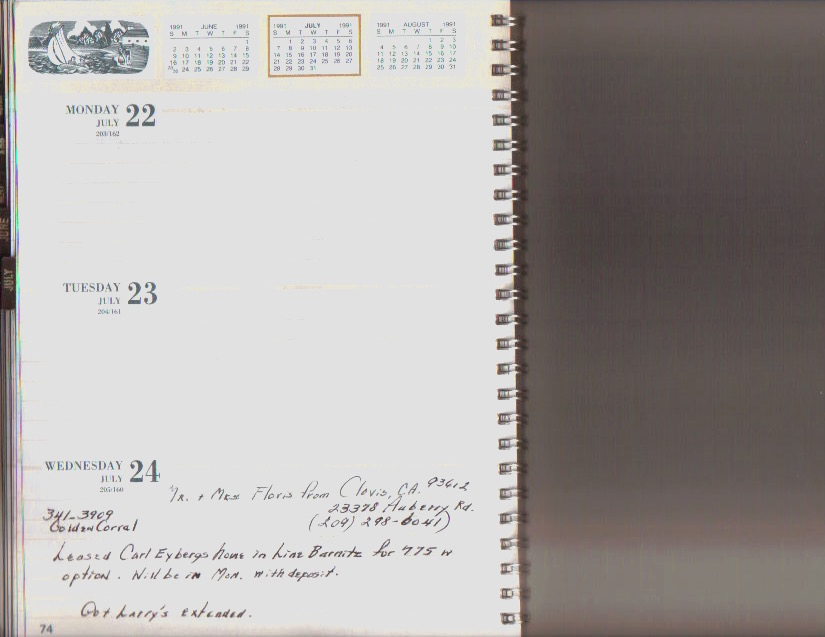 1991 JUNE 1991
S M T W T F S
1
2 3 4 5 6 7 8
9 10 11 12 13 14 15
16 17 18 19 20 21 22
23/30 24 25 26 27 28 29
1991 JULY 1991
S M T W T F S
1 2 3 4 5 6
7 8 9 10 11 12 13
14 15 16 17 18 19 20
21 22 23 24 25 26 27
28 29 30 31
1991 AUGUST 1991
S M T W T F S
1 2 3
4 5 6 7 8 9 10
11 12 13 14 15 16 17
18 19 20 21 22 23 24
25 26 27 28 29 30 31
MONDAY 22
JULY
203/162
TUESDAY 23
JULY
204/161
JUNE
JULY
WEDNESDAY 24
JULY
205/160
Mr. + Mrs. Floris from Clovis, CA. 93612
23378 Auberry Rd.
(209) 298-6041)
341-3909
Golden Corral
Leased Carl Eybergs home in Line Barnitz for 775 w
option. Will be in Mon. with deposit.
Got Larry's extended.
74